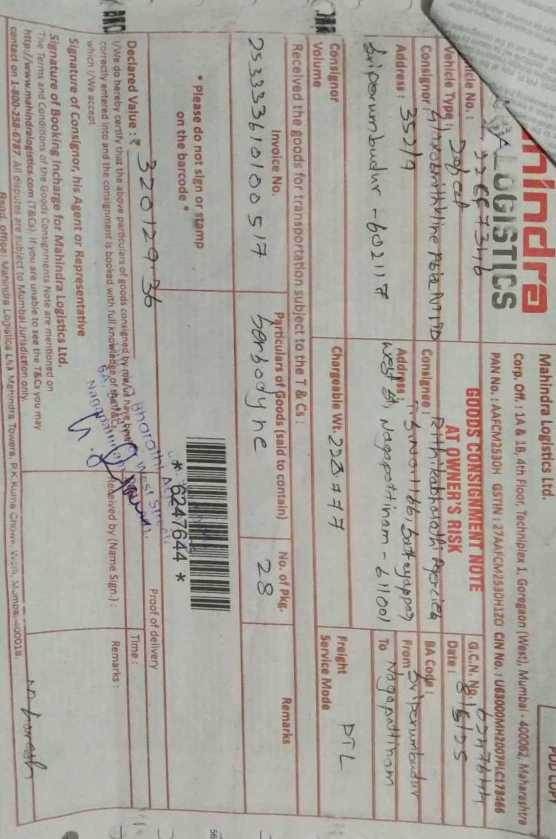 POD COPY
mahindra
LOGISTICS
Mahindra Logistics Ltd.
Corp. Off. : 1A & 1B, 4th Floor, Techniplex 1, Goregaon (West), Mumbai - 400062, Maharashtra
PAN No. : AAFCM2530H GSTIN : 27AAFCM2530H1ZO CIN No. : U63000MH2007PLC173466
GOODS CONSIGNMENT NOTE
AT OWNER'S RISK
G.C.N. No. 6247644
Date : 8/5/25
Vehicle No. :
Vehicle Type :
BA Code :
Consignor :
Consignee : Agencies
From Sriperumbudur
To Nagapattinam
Address : 352/9
Sriperumbudur - 602117
Address :
Nagapattinam - 611001
Consignor
Volume
Chargeable Wt. 223.777
Freight
Service Mode PTL
Received the goods for transportation subject to the T & Cs :
Invoice No.
Particulars of Goods (said to contain)
No. of Pkg.
Remarks
253333610100517
Sensodyne
28
* Please do not sign or stamp
on the barcode *
* 6247644 *
Declared Value : ₹ 320129.36
Proof of delivery
I/We do hereby certify that the above particulars of goods consigned by me/us have been
correctly entered into and the consignment is booked with full knowledge of the T&Cs
which I/We accept
Received by (Name Sign.) :
Time :
Remarks :
Signature of Consignor, his Agent or Representative
Signature of Booking Incharge for Mahindra Logistics Ltd.
The Terms and Conditions of the Goods Consignments Note are mentioned on
http://www.mahindralogistics.com (T&Cs). If you are unable to see the T&Cs you may
contact on 1-800-258-6787. All disputes are subject to Mumbai Jurisdiction only.
Regd. office: Mahindra Logistics Ltd. Mahindra Towers, P.K. Kurne Chowk, Worli, Mumbai-400018.